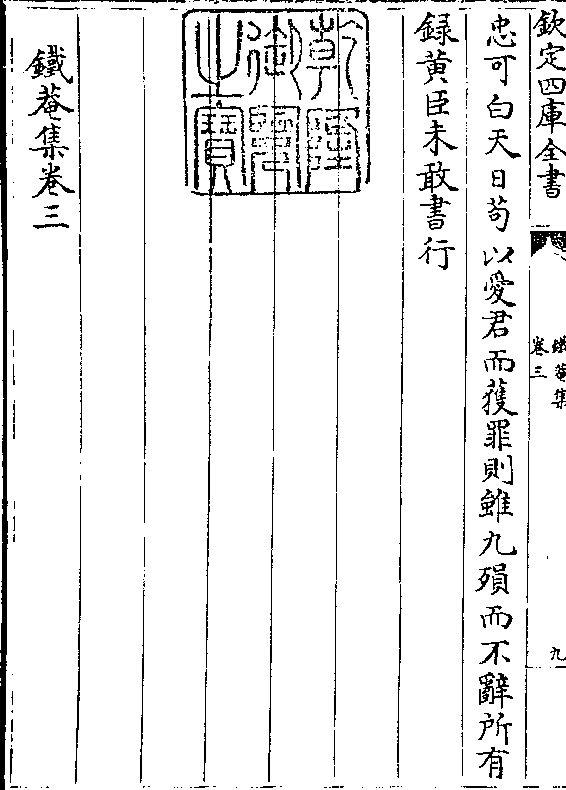 欽定四庫全書
鐵菴集
卷三
九
忠可白天日苟以愛君而獲罪則雖九殞而不辭所有
録黄臣未敢書行
乾隆御覽之寶
鐵菴集卷三